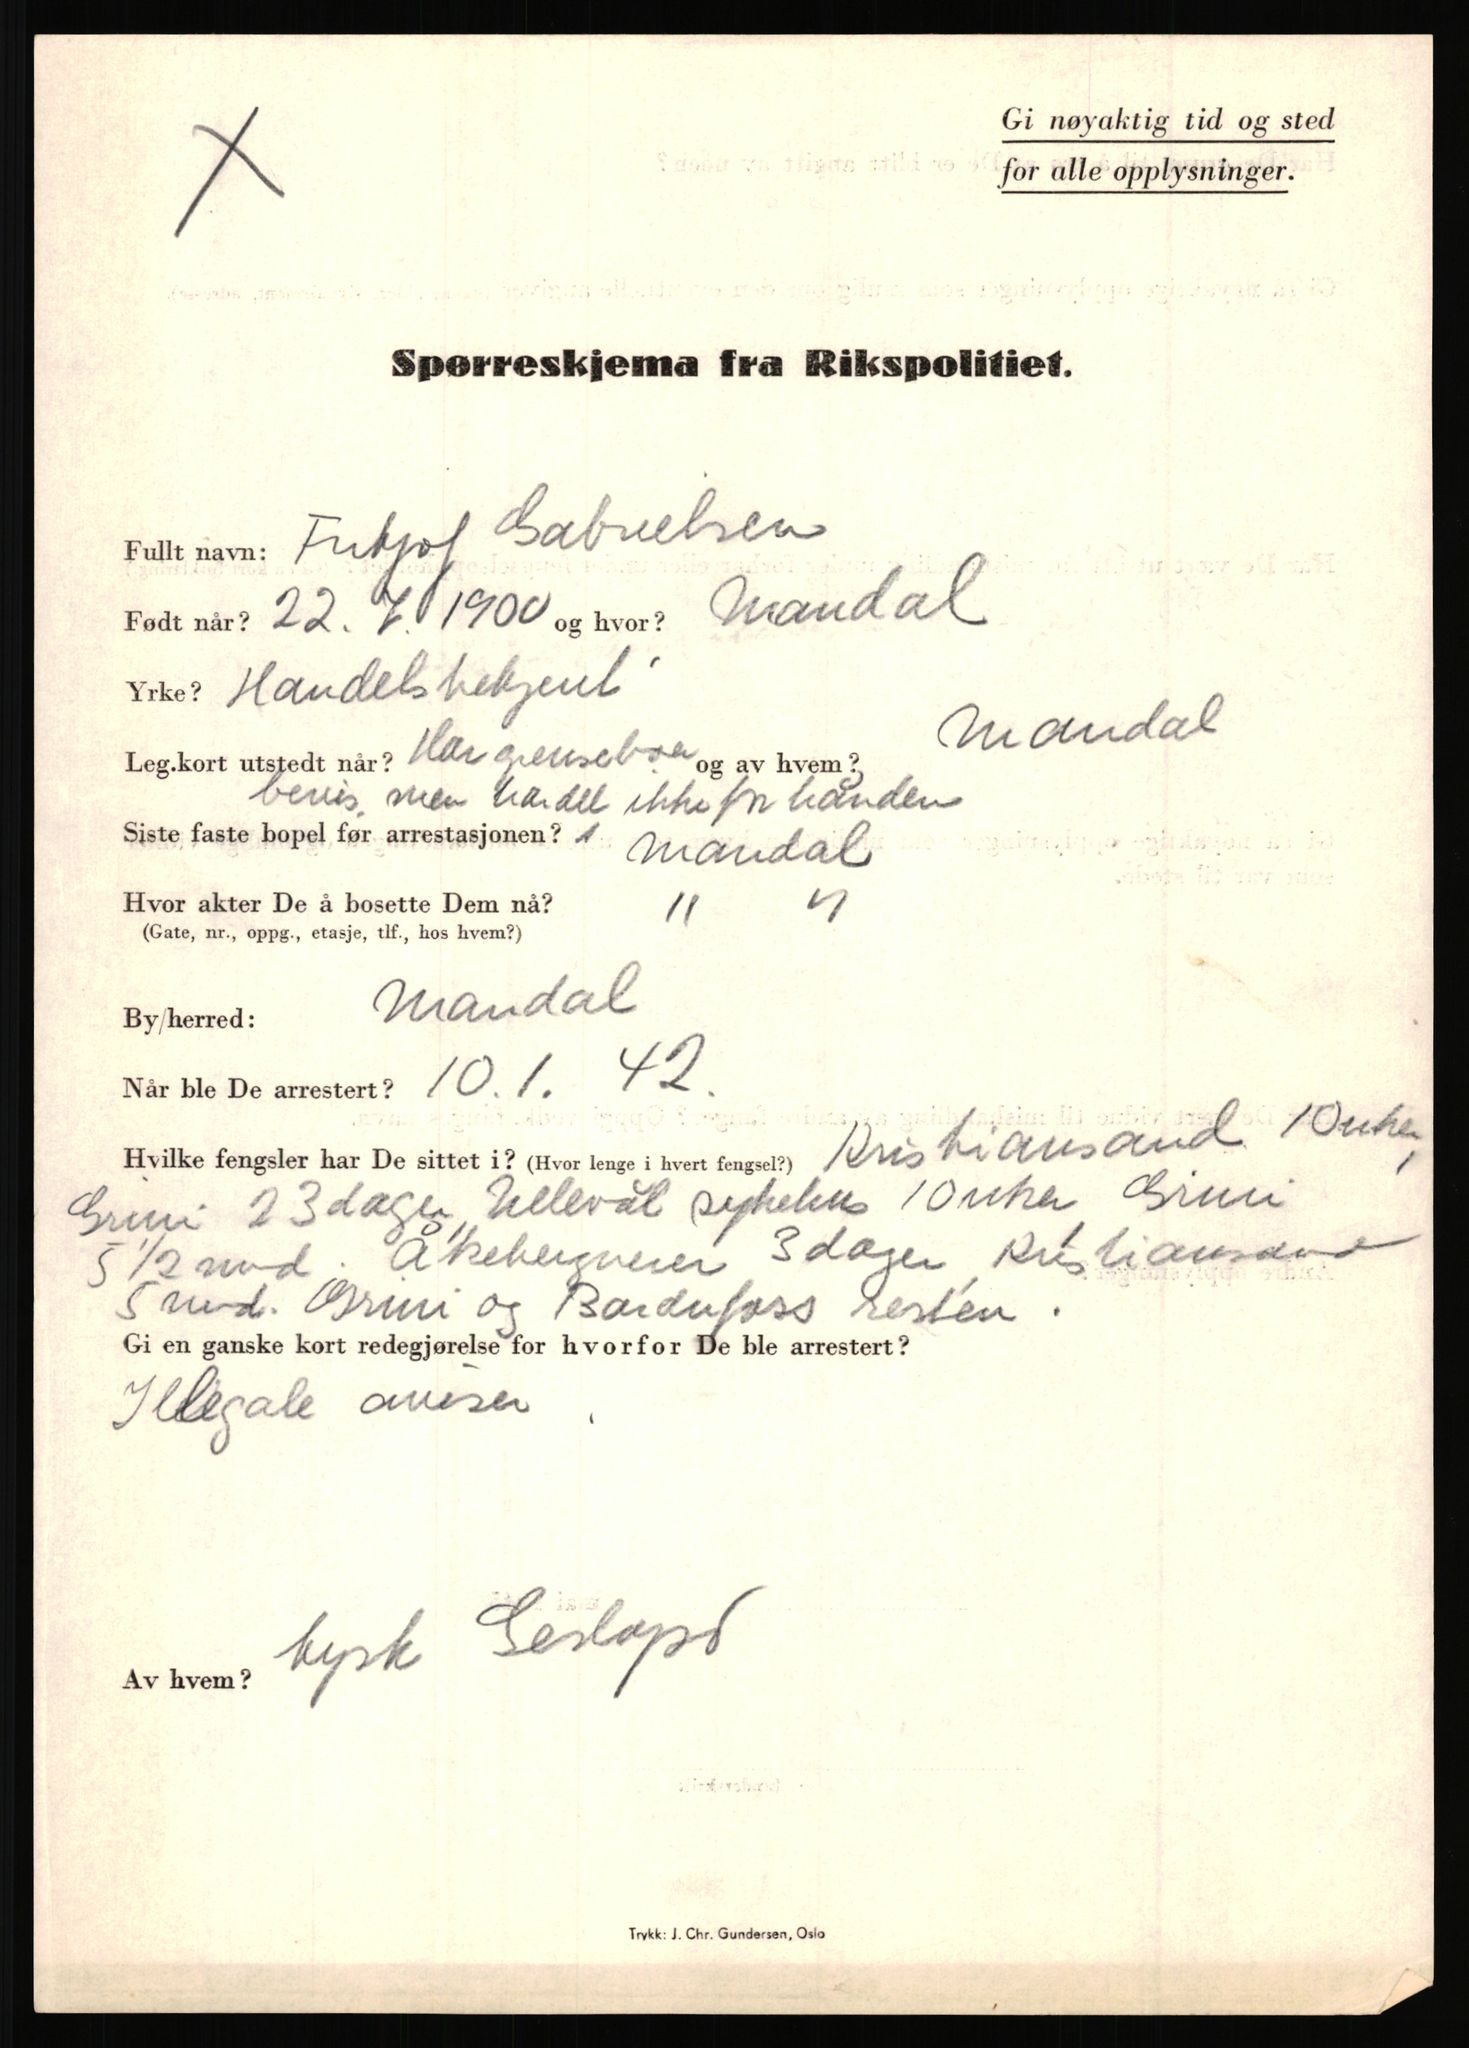 Gi nøyaktig tid og sted
for alle opplysninger.
Spørreskjema fra Rikspolitiet.
Fullt navn: Fritjof Gabrielsen
Født når? 22. 7. 1900 og hvor? Mandal
Yrke? Handelsbetjent
Leg.kort utstedt når? Har grenseboer og av hvem? Mandal
bevis, men har det ikke for hånden
Siste faste bopel før arrestasjonen? Mandal
Hvor akter De å bosette Dem nå? " "
(Gate, nr., oppg., etasje, tlf., hos hvem?)
By/herred: Mandal
Når ble De arrestert? 10. 1. 42.
Hvilke fengsler har De sittet i? (Hvor lenge i hvert fengsel?) Kristiansand 10 uker,
Grini 23 dager, Ullevål sykehus 10 uker Grini
5 1/2 mnd. Åkebergveien 3 dager, Kristiansand
5 mnd. Grini og Bardufoss resten.
Gi en ganske kort redegjørelse for hvorfor De ble arrestert?
Illegale aviser.
Av hvem? tysk Gestapo
Trykk: J. Chr. Gundersen, Oslo